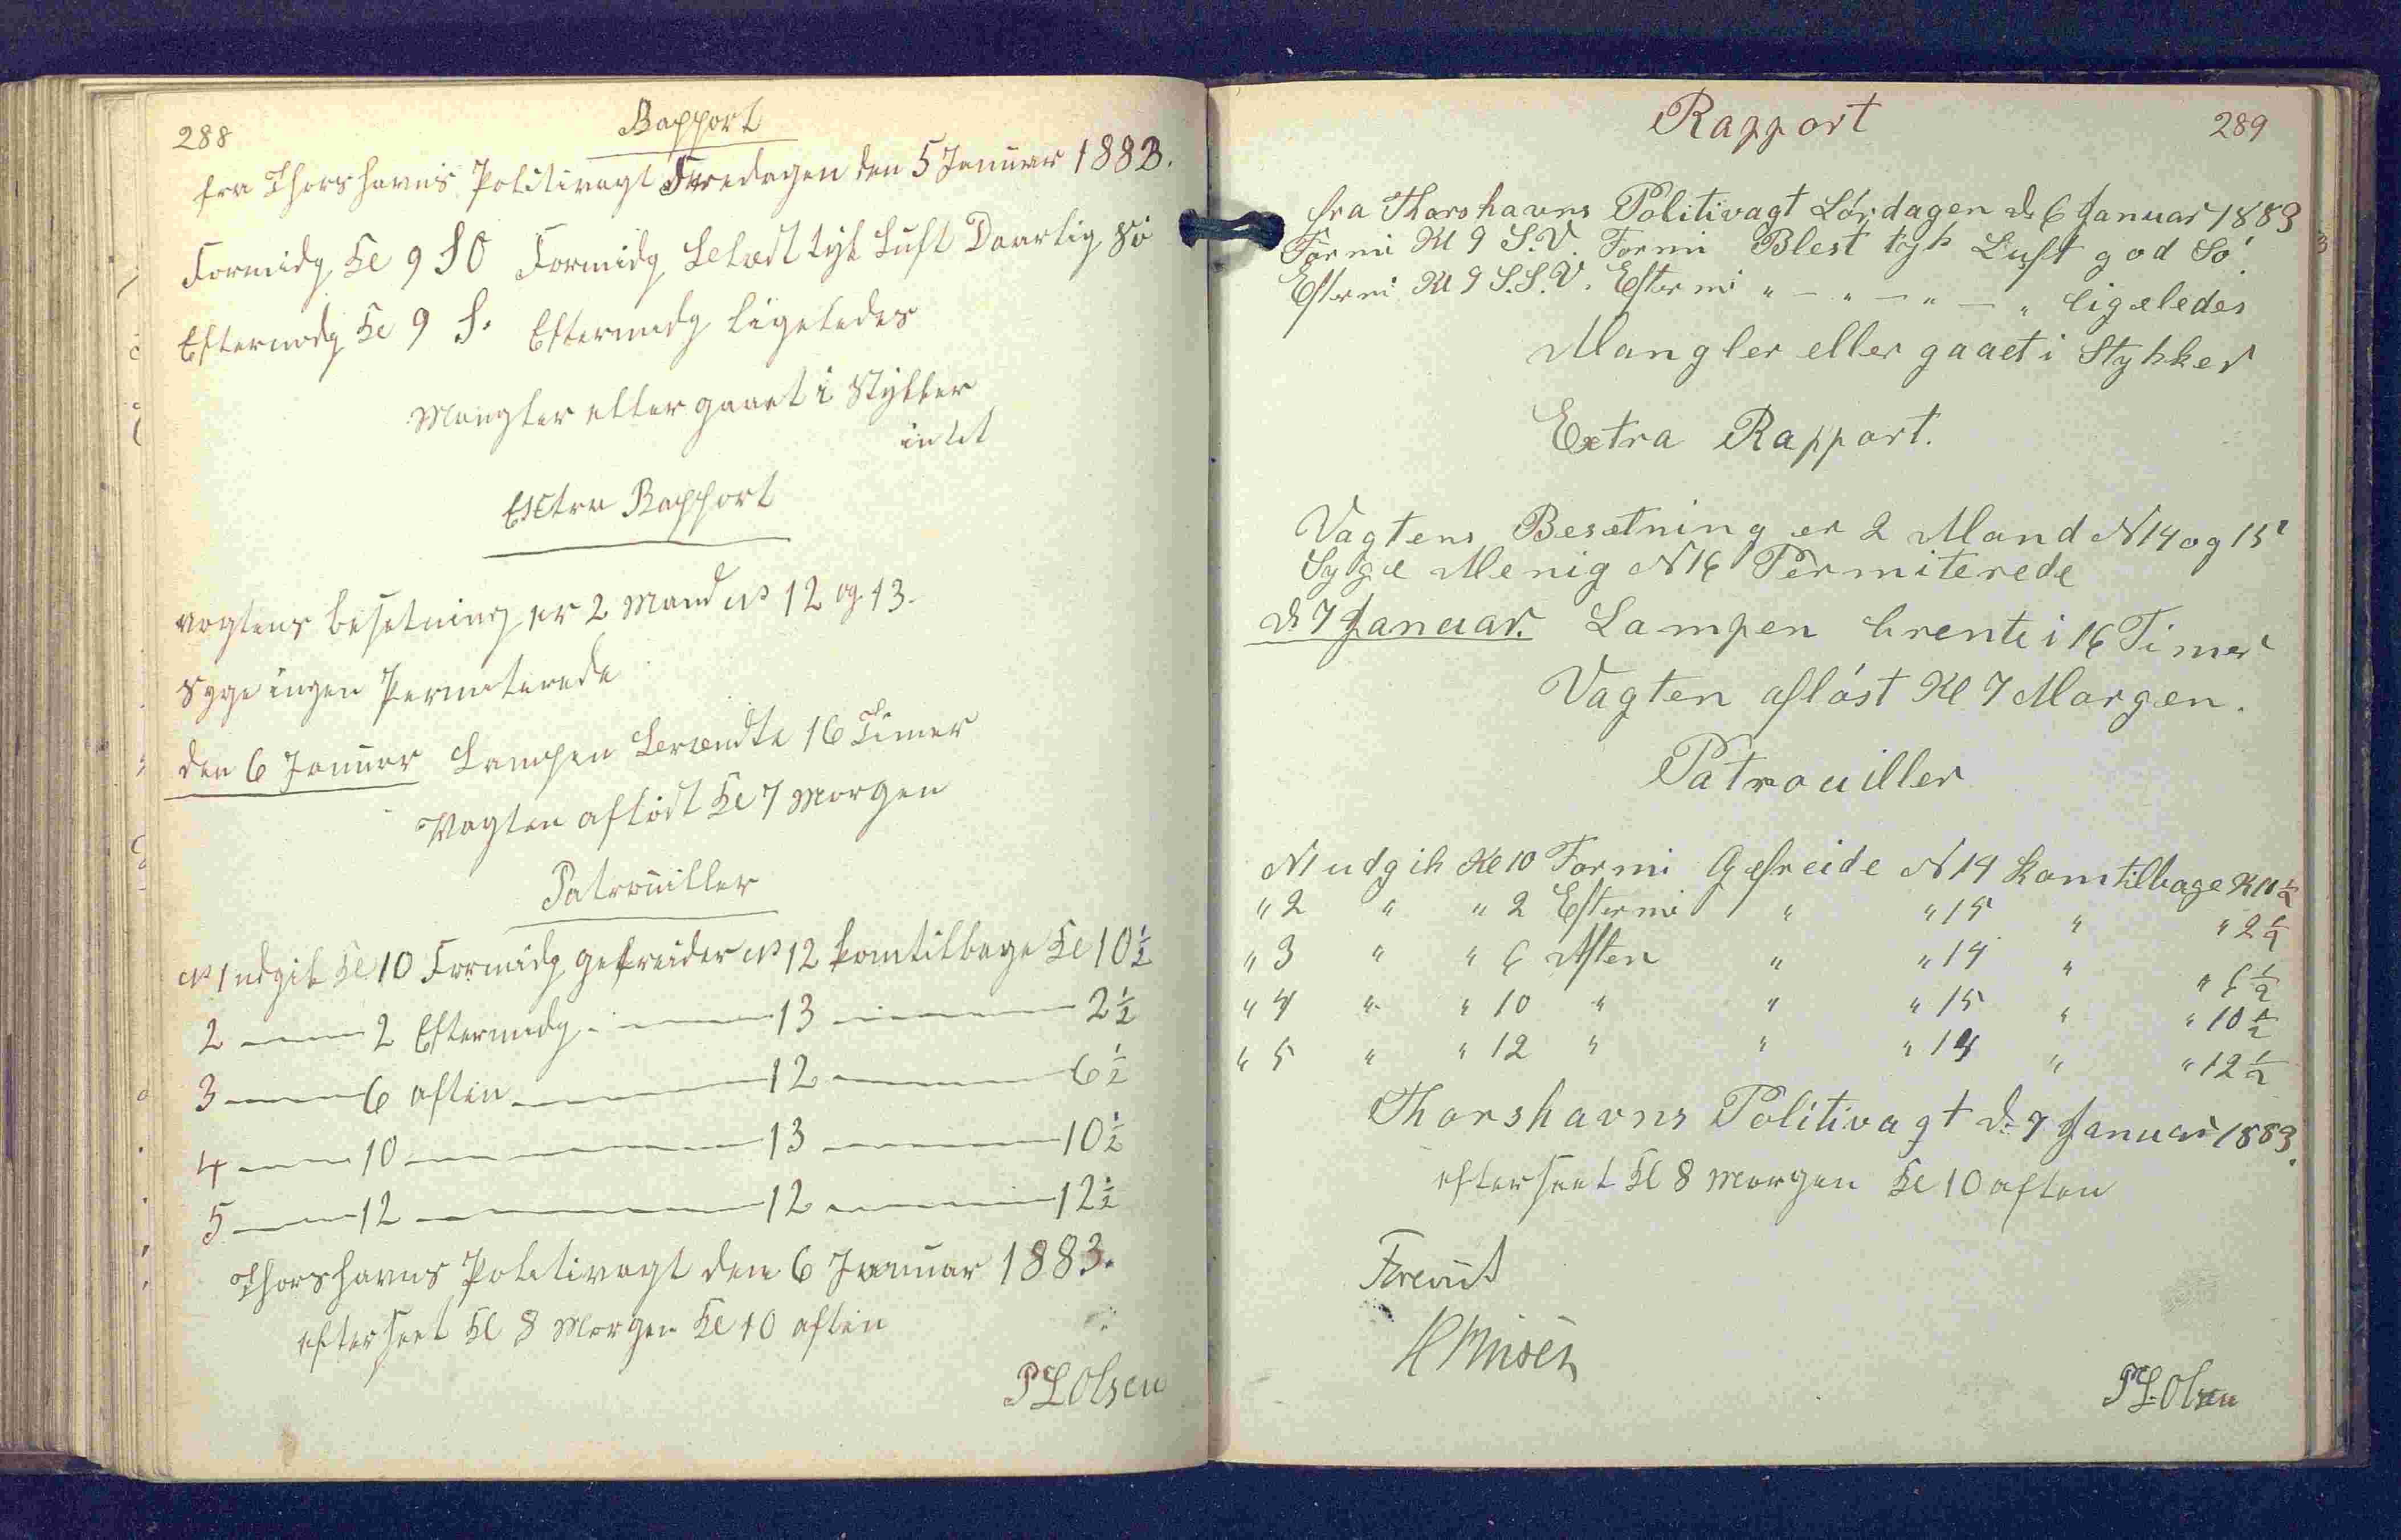 288
Rapport
fra Thorshavns Politivagt Fredagen den 5 Januar 1883.
Formidg Kl 9 SO Formidg Leladt tyk Luft Daarlig Sö
Eftermidg Kl 9 S. Eftermidg ligeledes
Mangler eller gaaet i Stykker
intet
Extra Rapport
Vagtens besetning er 2 Mand No 12 og 13.
Syge ingen Permiterede
den 6 Januar Lampen brændte 16 Timer
Vagten aflöst Kl 7 Morgen
Patrouiller
No 1 udgik Kl 10 Formidg gefreider No 12 komtilbage Kl 10½
2 — 2 Eftermidg — 13 — 2½
3 — 6 aften — 12 — 6½
4 — 10 — 13 — 10½
5 — 12 — 12 — 12½
Thorshavns Politivagt den 6 Januar 1883.
efterseet Kl 8 Morgen Kl 10 aften
PLOlsen
Rapport
289
fra Thorshavns Politivagt Lördagen d. 6 Januar 1883
Formi Kl 9 S.V. Formi Blest tyk Luft god Sö
Eftermi Kl 9 S.S.V. Eftermi " — " — " — " ligeledes
Mangler eller gaaet i Stykker
Extra Rapport.
Vagtens Besætning er 2 Mand N 14 og 15
Syge Menig N 16 Permiterede
d. 7 Januar. Lampen brente i 16 Timer
Vagten aflöst Kl 7 Morgen.
Patrouiller
N 1 udgik Kl 10 Formi Gefreide N 14 komtilbage Kl 10½
" 2 " " 2 Eftermi " " 15 " " 2½
" 3 " " 6 Aften " " 14 " " 6½
" 4 " " 10 " " " 15 " " 10½
" 5 " " 12 " " " 14 " " 12½
Thorshavns Politivagt d. 7 Januar 1883.
efterseet Kl 8 Morgen Kl 10 aften
PLOlsen